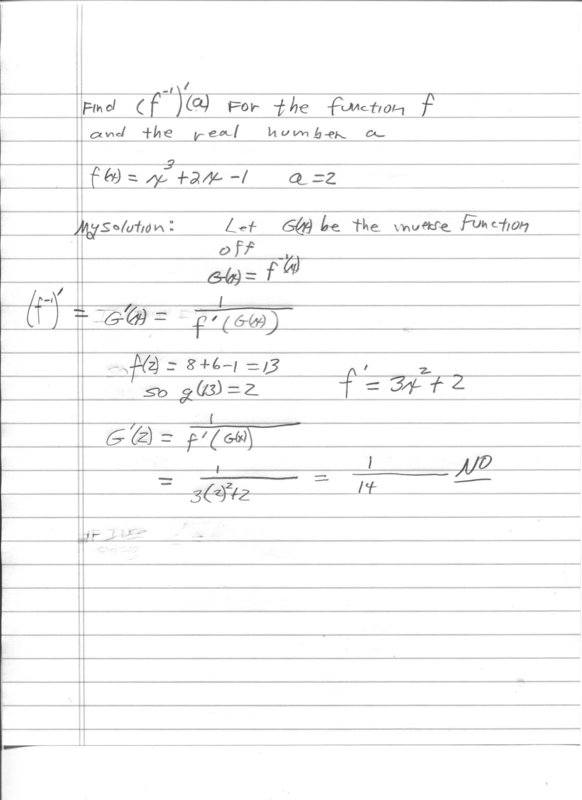 Find (f⁻¹)'(a) For the function f
and the real number a
f(x) = x³ + 2x - 1 a = 2
My solution: Let G(x) be the inverse Function
off
G(x) = f⁻¹(x)
(f⁻¹)' = G'(x) = 1 / f'(G(x))
f(2) = 8 + 6 - 1 = 13
so g(13) = 2 f' = 3x² + 2
G'(2) = 1 / f'(G(x))
= 1 / 3(2)²+2 = 1 / 14 NO